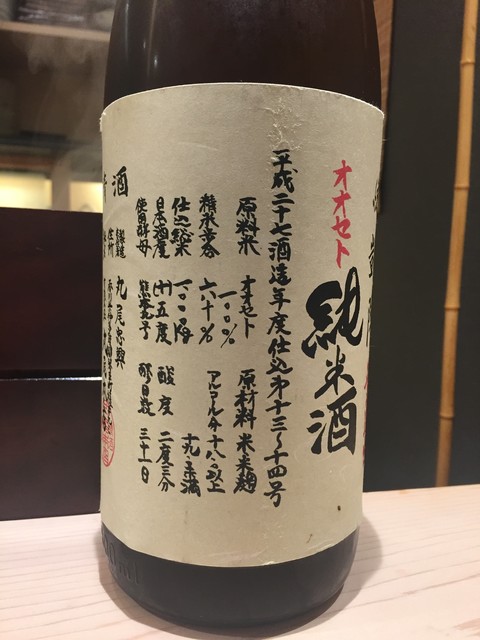 オオセト
純米酒
平成二十七酒造年度仕込第十三〜十四号
原料米 オオセト 一〇〇% 原材料 米 米麹
精米歩合 六八十% アルコール分 十八度以上 十九度未満
仕込総米 一〇〇〇kg
日本酒度 (+)五度 酸度 二度三分
使用酵母 熊本九号 醪日数 三十一日
酒
丸尾忠興